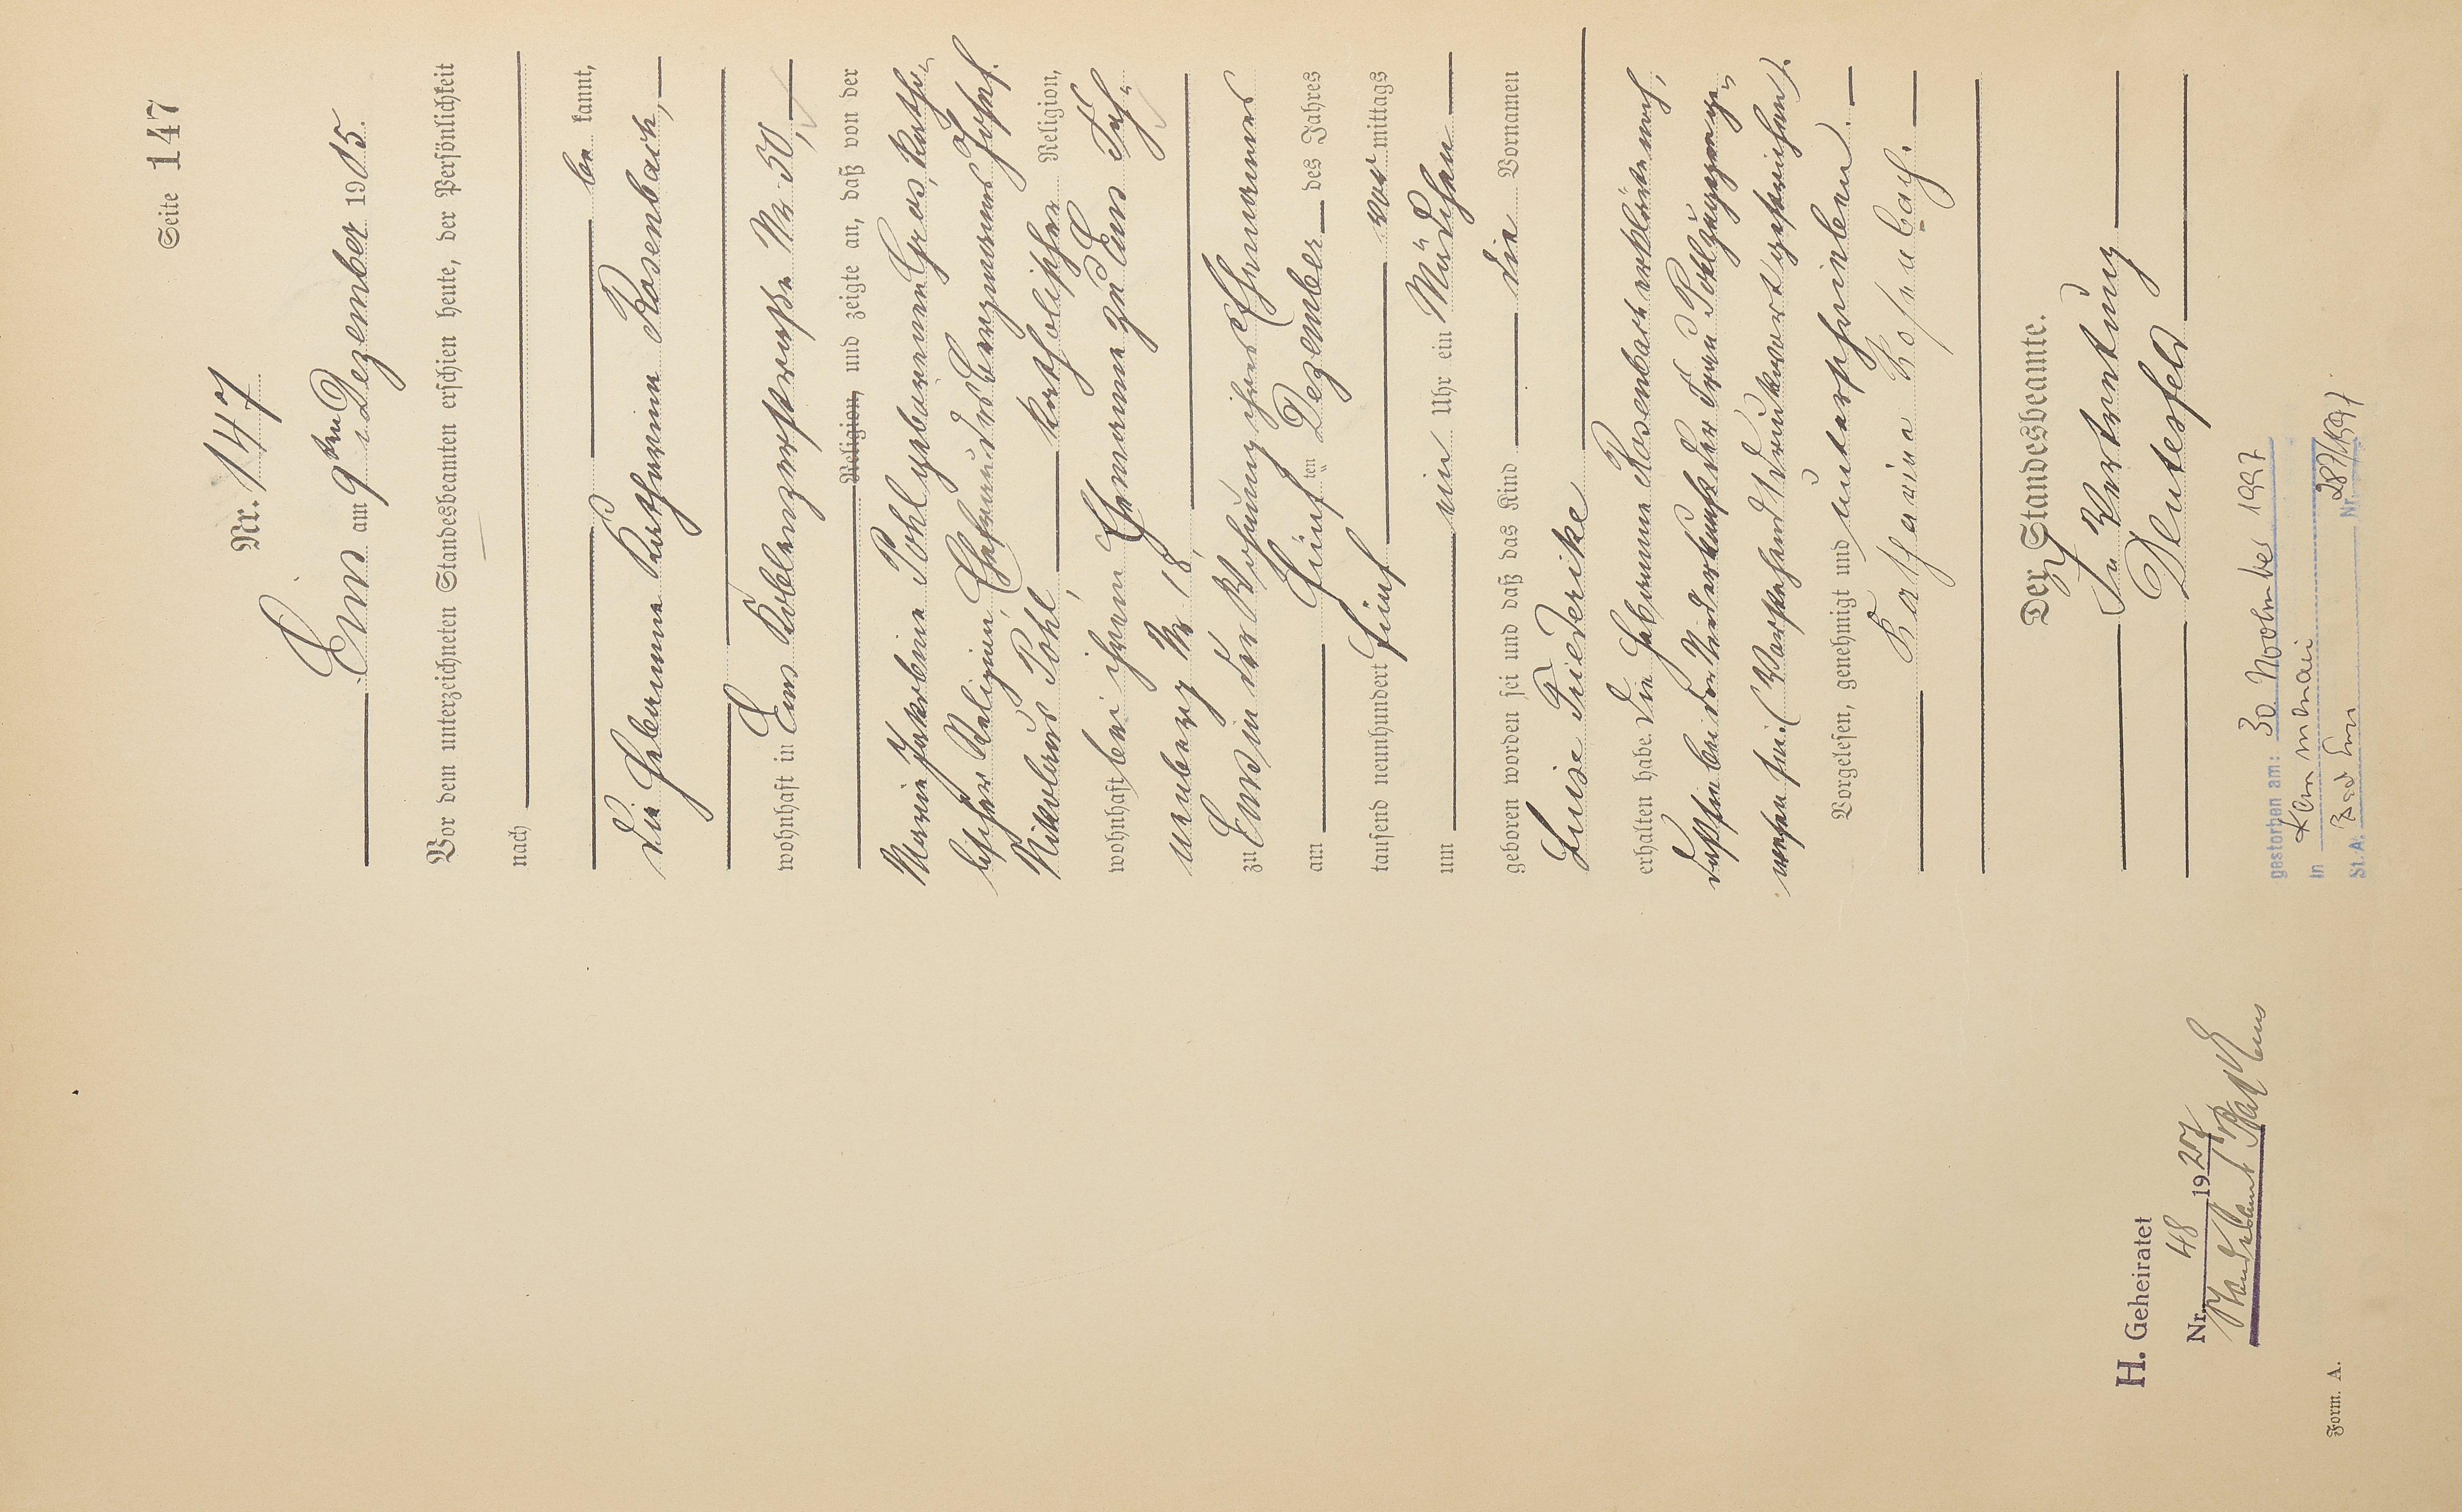 Seite 147
Nr. 147
Ems am 9ten Dezember 1905.
Vor dem unterzeichneten Standesbeamten erschien heute, der Persönlichkeit
nach
be kannt,
die Hebamme Katharina Rosenbach,
wohnhaft in Ems Koblenzerstraße Nr. 50,
Religion, und zeigte an, daß von der
Maria Jakobina Pohl geborenen Gros, katho-
lischer Religion, Ehefrau des Bergmanns Josef
Nikolaus Pohl, katholischer Religion,
wohnhaft bei ihrem Ehemanne zu Ems
Nr. 18,
zu Ems in der Wohnung ihres Ehemannes
am fünf ten Dezember des Jahres
tausend neunhundert fünf vor mittags
um ein Uhr ein Mädchen
geboren worden sei und daß das Kind die Vornamen
Luise Friederike
erhalten habe. Die Hebamme Rosenbach erklärte noch,
daß sie bei der Niederkunft der Frau Pohl zugegen ge-
wesen sei. (Vorstehend 1 Druckwort gestrichen).
Vorgelesen, genehmigt und unterschrieben.
Katharina Rosenbach.
Der Standesbeamte.
In Vertretung
Deutesfeld
gestorben am: 30 November 1997
in Kemmenau
St.A. Bad Ems Nr. 287/1997
H. Geheiratet
Nr. 48 1927
Standesamt Bad Ems
Form. A.